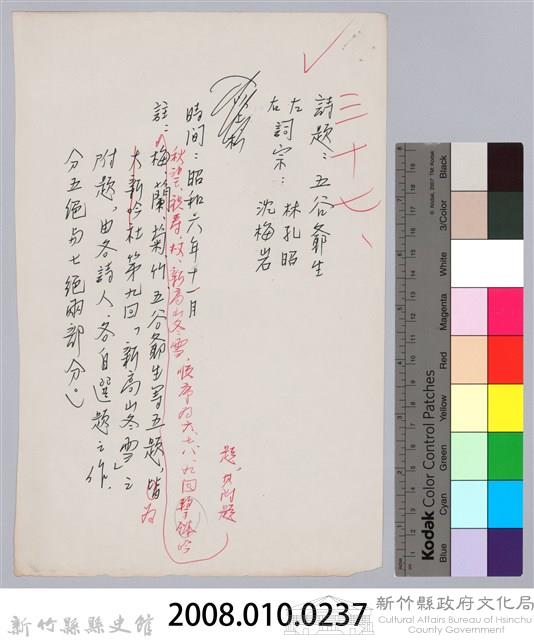 三十七、
詩題：五谷爺生
左
右 詞宗： 林孔昭
沈梅岩
時間：昭和六年十一月
秋望、祝壽、杖、新高山冬雪，順序為六七八、九回擊鉢吟
題，其附題
註：梅蘭菊竹五谷爺生等五題，皆為
大新吟社第九回「新高山冬雪」之
附題，由各詩人，各自選題之作，
分五絕与七絕兩部分。）
Black
3/Color
White
Magenta
Red
Yellow
Green
Cyan
Blue
Kodak Color Control Patches
新竹縣縣史館
2008.010.0237
新竹縣政府文化局
Cultural Affairs Bureau of Hsinchu
County Government